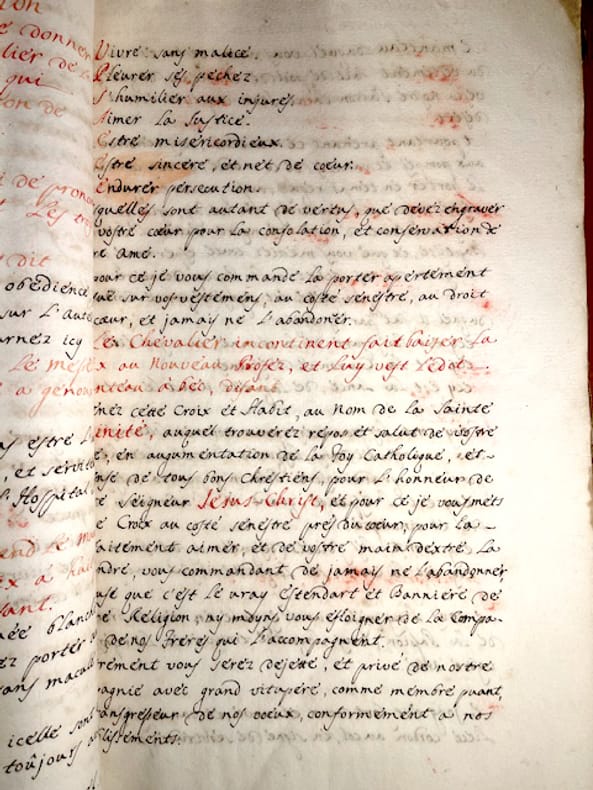 ion
e donner
lier de
qui
ion de
i de prono
Les tr
dit
obedience
sur L'aute
urnez icy
Le mess
a genou
as estre L
, et servito
Hospital
end le m
ex a ha
sant.
uée blanc
ez porter
sans macul
icelle sont
toûjours
Vivre sans malice.
Pleurer ses pechez
S'humilier aux injures.
Aimer La Justice.
Estre misericordieux.
Estre sincere, et net de coeur.
Endurer persecution.
squelles sont autant de vertus, que devez engraver
vostre coeur pour La consolation, et conservation de
re ame.
pour ce je vous commande La porter apertement
sué sur vos vestemens, au costé senestre, au droit
coeur, et jamais ne L'abandoner.
Les Chevalier incontinent fait baiser La
x au Nouveau Profez, et Luy vest Ledot
nteau a bec, disant.
nez cette Croix et Habit, au nom de La Sainte
inité, auquel trouverez repos et salut de vostre
e, en augmentation de La Foy Catholique, et
nse de tous bons Chrestiens, pour L'honneur de
e Seigneur Jesus-Christ, et pour ce je vous mets
e Croix au costé senestre pres du coeur, pour La
aitement aimer, et de vostre main dextre La
ndre, vous commandant de jamais ne L'abandonner
use que c'est Le vray estendart et Banniere de
e Religion, ny moyns vous esloigner de La Compa-
de nos freres qui L'accompagnent.
rement vous serez dejetté, et privé de nostre
agnie avec grand vitupere, comme membre puant,
ansgresseur de nos voeux, conformement a nos
blissements.